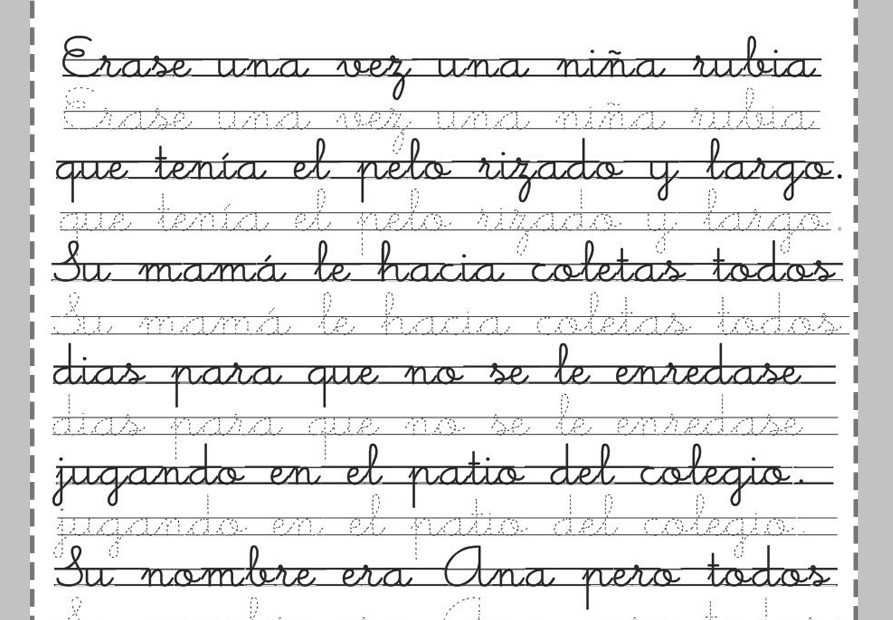 Erase una vez una niña rubia
Erase una vez una niña rubia
que tenía el pelo rizado y largo.
que tenía el pelo rizado y largo.
Su mamá le hacia coletas todos
Su mamá le hacia coletas todos
dias para que no se le enredase
dias para que no se le enredase
jugando en el patio del colegio.
jugando en el patio del colegio.
Su nombre era Ana pero todos